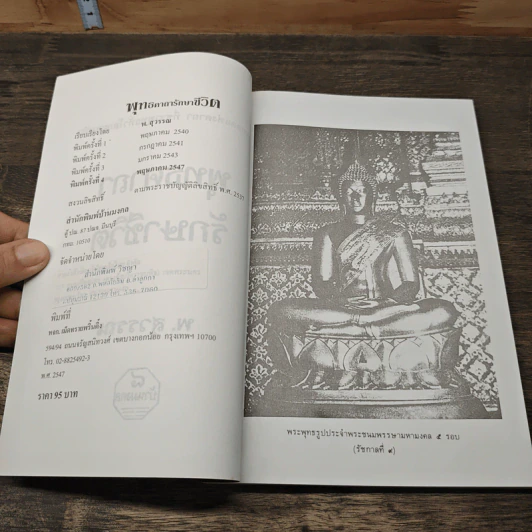 พุทธคาถารักษาชีวิต
เรียบเรียงโดย พ. สุวรรณ
พิมพ์ครั้งที่ 1 พฤษภาคม 2540
พิมพ์ครั้งที่ 2 กรกฎาคม 2541
พิมพ์ครั้งที่ 3 มกราคม 2543
พิมพ์ครั้งที่ 4 พฤษภาคม 2547
สงวนลิขสิทธิ์ ตามพระราชบัญญัติลิขสิทธิ์ พ.ศ.
สำนักพิมพ์บ้านมงคล
ตู้ ปณ. มีนบุรี
กทม. 10510
จัดจำหน่ายโดย
สำนักพิมพ์
พิมพ์ที่
หจก.
594/94 ถนนจรัญสนิทวงศ์ เขตบางกอกน้อย กรุงเทพฯ 10700
โทร. 02-8825492-3
พ.ศ. 2547
ราคา 95 บาท
พระพุทธรูปประจำพระชนมพรรษามหามงคล ๕ รอบ
(รัชกาลที่ ๙)